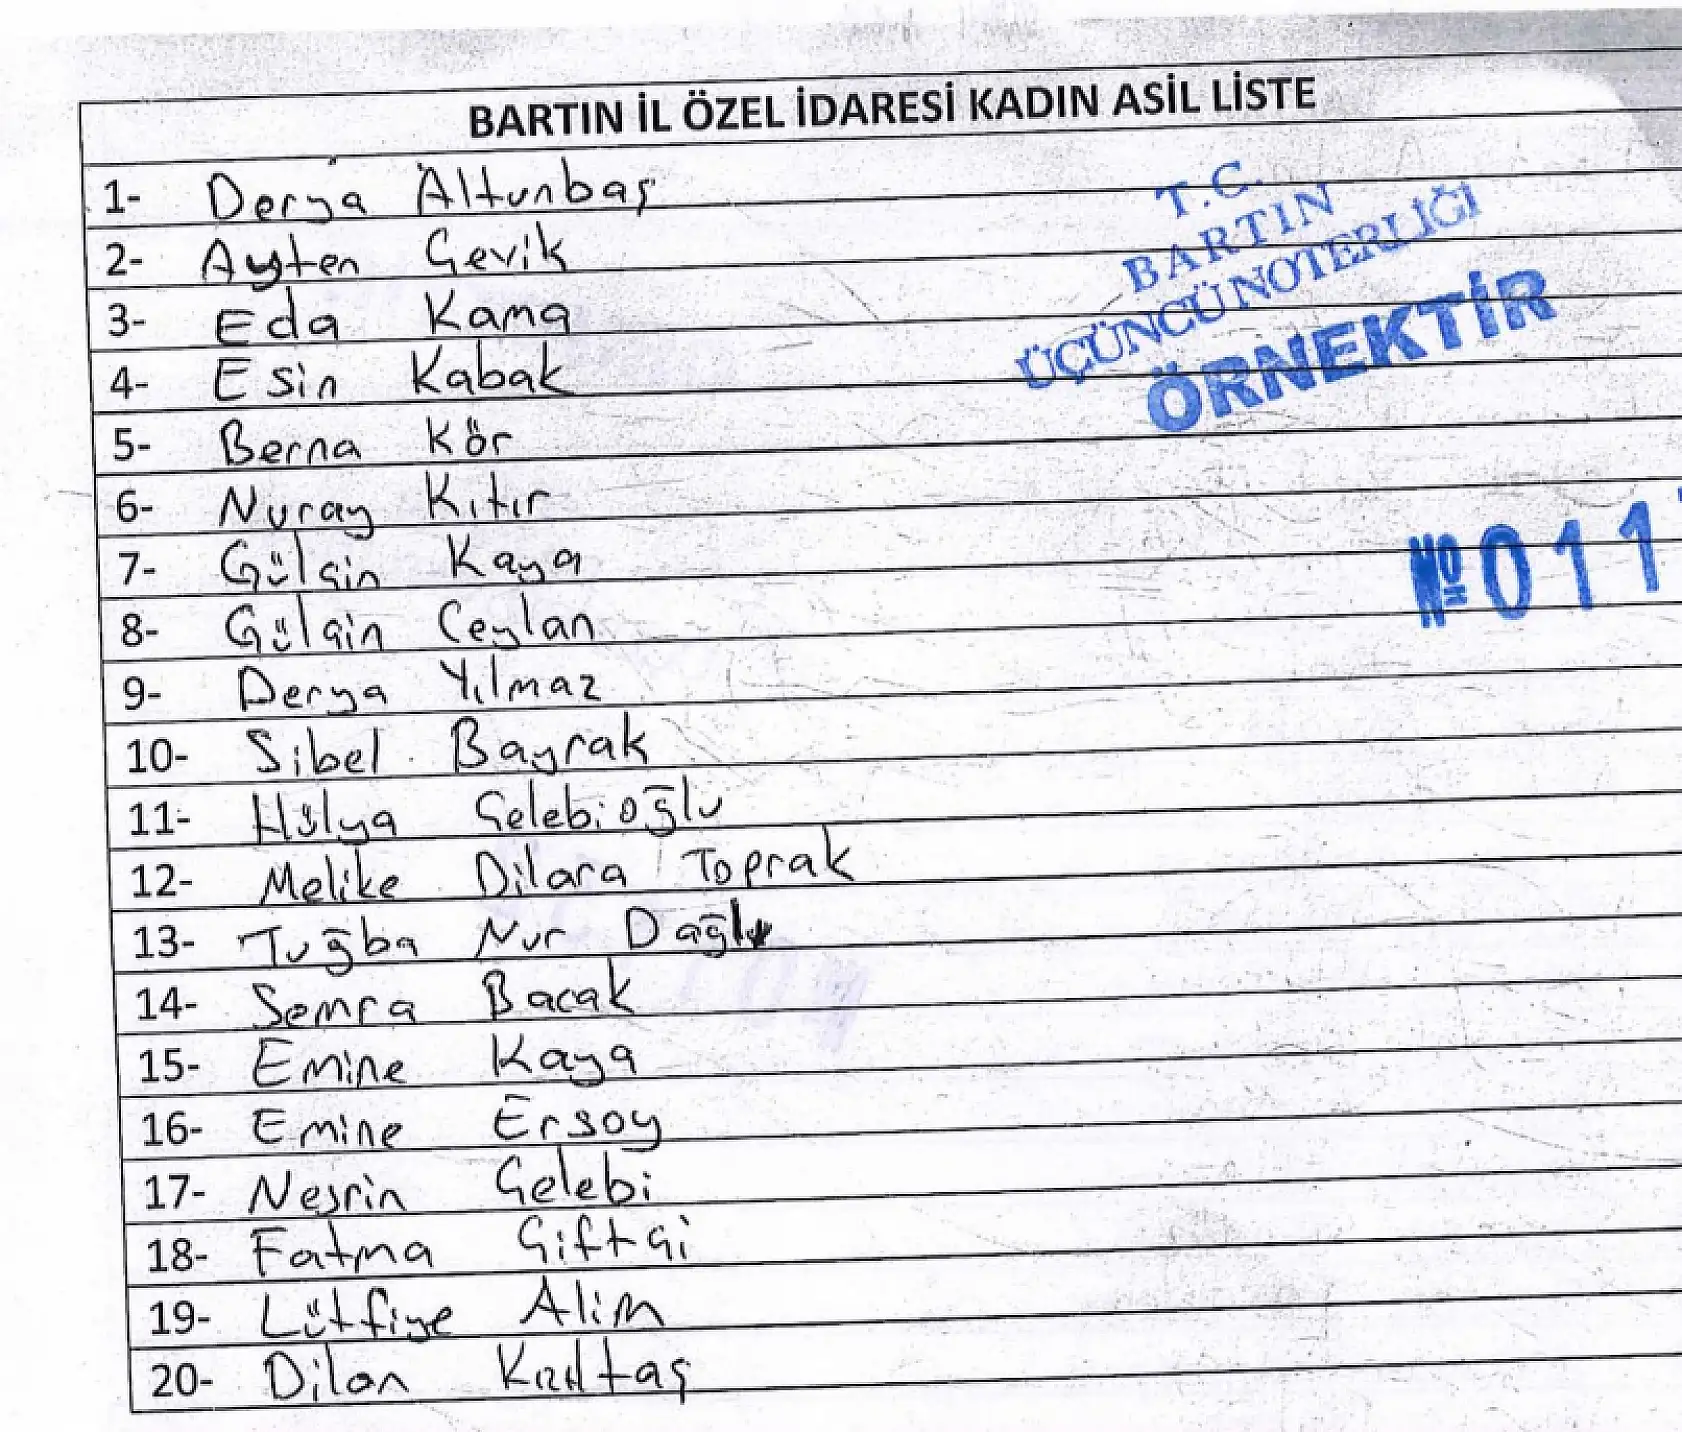 BARTIN İL ÖZEL İDARESİ KADIN ASİL LİSTE
1- Derya Altunbaş
2- Ayten Çevik
3- Eda Kama
4- Esin Kabak
5- Berna Kör
6- Nuray Kıtır
7- Gülçin Kaya
8- Gülçin Ceylan
9- Derya Yılmaz
10- Sibel Bayrak
11- Hülya Çelebioğlu
12- Melike Dilara Toprak
13- Tuğba Nur Dağlı
14- Semra Bacak
15- Emine Kaya
16- Emine Ersoy
17- Neşrin Çelebi
18- Fatma Çiftçi
19- Lütfiye Alim
20- Dilan Kızıltaş
T.C.
BARTIN
ÜÇÜNCÜ NOTERLİĞİ
ÖRNEKTİR
№ 011